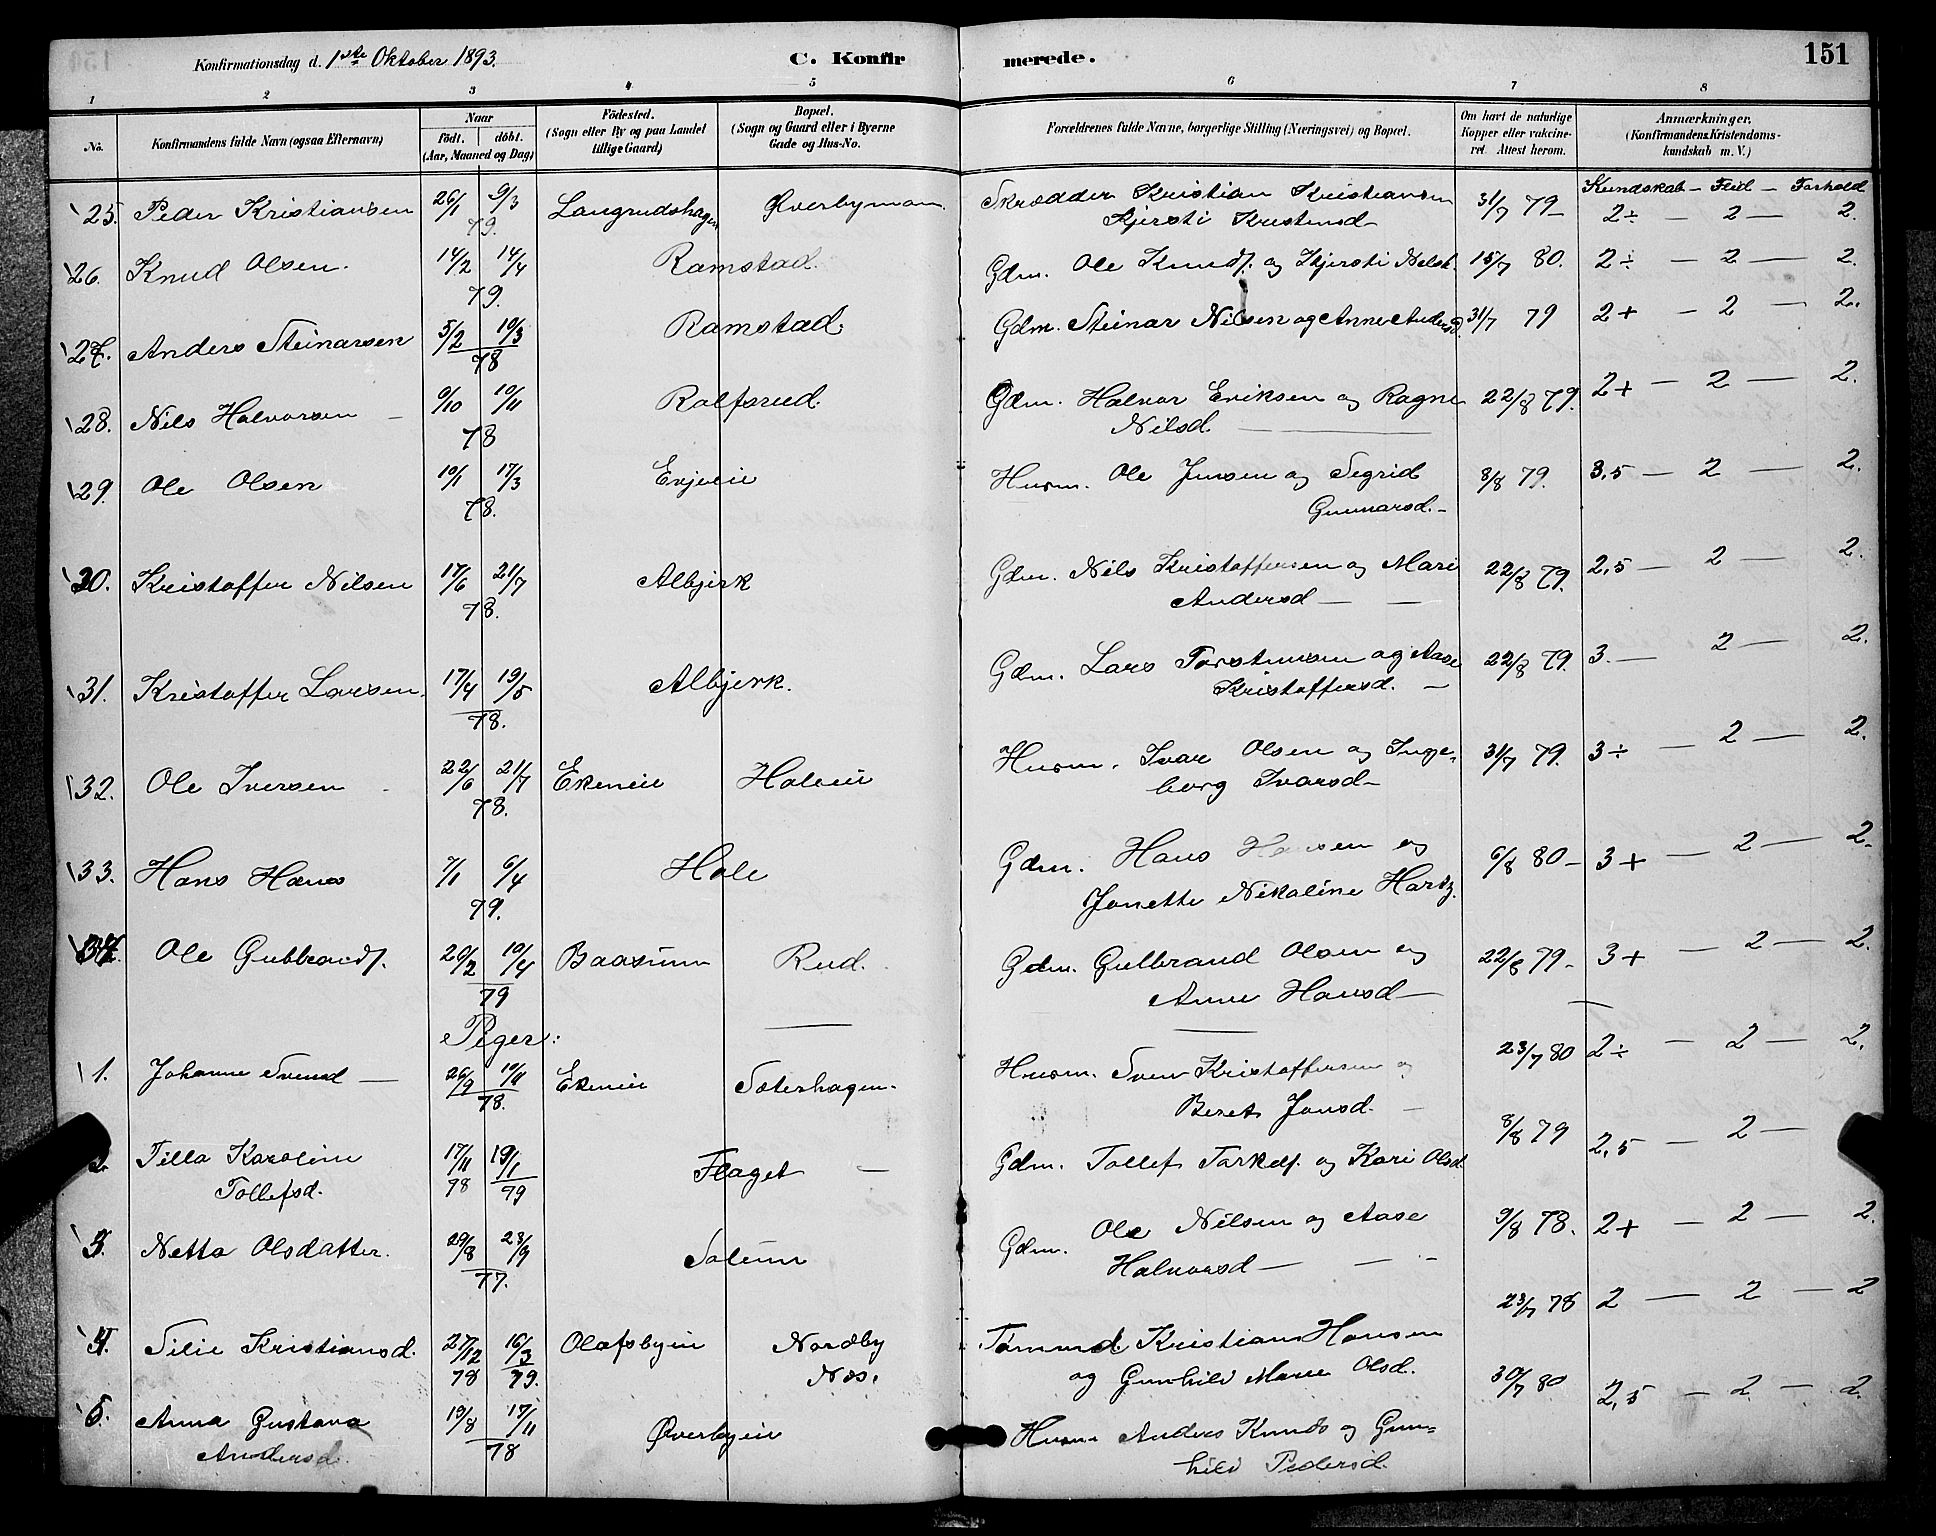 Konfirmationsdag d. 1ste Oktober 1893. C. Konfirmerede. 151
1 2 3 4 5 6 7 8
No. Konfirmandens fulde Navn (ogsaa Efternavn) Naar Födt. döbt. (Aar, Maaned og Dag) Födested. (Sogn eller By og paa Landet tillige Gaard) Bopæl. (Sogn og Gaard eller i Byerne Gade og Hus-No. Forældrenes fulde Navne, borgerlige Stilling (Næringsvei) og Bopæl. Om havt de naturlige Kopper eller vakcineret. Attest herom. Anmærkninger, (Konfirmandens Kristendomskundskab m. V.)
Kundskab – Flid – Forhold
25. Peder Kristiansen 26/1 9/3 79. Langrudshagen Øverbyman Skrædder Kristian Kristiansen Kjersti Kristensd – 31/7 79 – 2÷ – 2 – 2.
26. Knud Olsen. 14/2 14/4 79. Ramstad. Gdm. Ole Knuds. og Kjersti Nilsd. 15/7 80. 2÷ – 2 – 2.
27. Anders Steinarsen 5/2 10/3 78 Ramstad. Gdm. Steinar Nilsen og Anne Andersd. 31/7 79 2+ – 2 – 2.
28. Nils Halvorsen – 9/10 10/11 78 Rolfsrud. Gdm. Halvor Eriksen og Ragne Nilsd. 22/8 79. 2+ – 2 – 2.
29. Ole Olsen 10/1 17/3 78. Evjeeie Husm. Ole Jensen og Segrid Gunnarsd. – 8/8 79. 3,5 – 2 – 2.
30. Kristoffer Nilsen 17/6 21/7 78. Albjerk Gdm. Nils Kristoffersen og Mari Andersd – 22/8 79. 2,5 – 2 – 2.
31. Kristoffer Larsen. 17/4 19/5 78. Albjerk. Gdm. Lars Torstensen og Aase Kristoffersd. – 22/8 79. 3. – 2 – 2.
32. Ole Iversen 22/6 21/7 78. Ekeneie Holeeie Husm. Ivar Olsen og Ingeborg Ivarsd – 31/7 79. 3÷ – 2 – 2.
33. Hans Hans 7/1 6/4 79. Hole Gdm. Hans Hansen og Jonette Nikoline Hartz. 6/8 80 – 3+ – 2 – 2.
34. Ole Gulbrands. 20/2 10/4 79 Baasum Rud. Gdm. Gulbrand Olsen og Anne Hansd – 22/8 79 – 3+ – 2 – 2.
Piger:
1. Johanne Svensd – 26/9 10/11 78. Ekeneie Sæterhagen. Husm. Sven Kristoffersen og Beret Jonsd. – 23/7 80 2÷ – 2 – 2.
2. Tilla Karoline Tollefsd. 17/11 78 19/1 79 Flaget – Gdm. Tollef Torkels. og Kari Olsd. 8/8 79 2,5 – 2 – 2.
3. Netta Olsdatter. 29/8 23/9 77. Solum Gdm. Ole Nilsen og Aase Halvorsd – 9/8 78. 2+ – 2 – 2.
4. Silie Kristiansd. 27/12 78 16/3 79. Olafsbyeie Nordby Næs. Tømmd. Kristian Hansen og Gunhild Marie Olsd. 23/7 78 2 – 2 – 2
5. Anna Gustava Andersd. 19/8 17/11 78 Øverbyeie Husm. Anders Knuds og Gunhild Pedersd. 30/7 80 2,5 – 2 – 2.